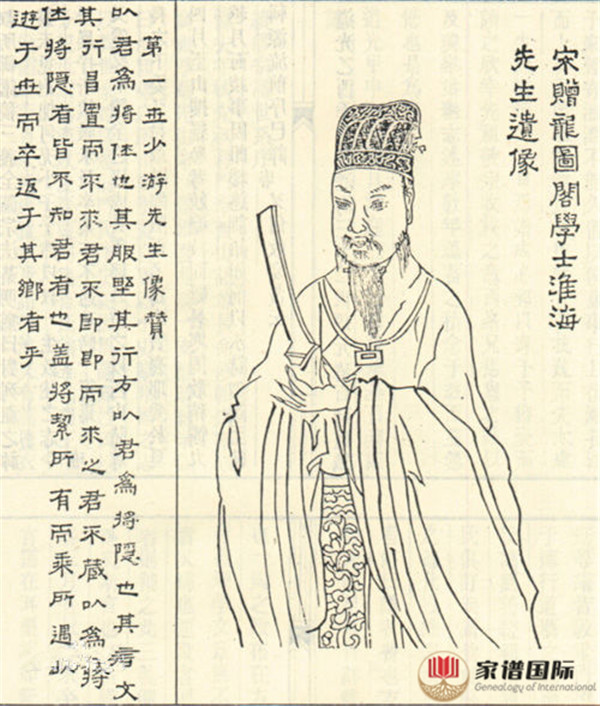 宋贈龍圖閣學士淮海
先生遺像
第一世少游先生像贊
以君爲將仕也其服野其行方以君爲將隱也其言文
其行昌置而不求君不即即而求之君不藏以爲將
仕將隱者皆不知君者也蓋將挈所有而乘所遇以
遊于世而卒返于其鄉者乎
家谱国际
Genealogy of International